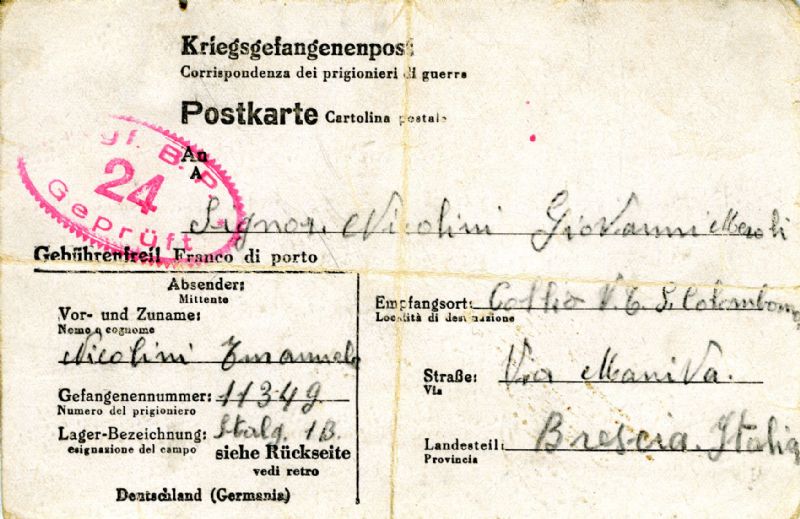 Kriegsgefangenenpost
Corrispondenza dei prigionieri di guerra
Postkarte Cartolina postale
An
A
gf. B.P.
24
Geprüft
Signor. Nicolini Giovanni
Gebührenfrei! Franco di porto
Absender:
Mittente
Vor- und Zuname:
Nome e cognome
Nicolini Emanuele
Gefangenennummer: 11349
Numero del prigioniero
Lager-Bezeichnung: Stalg. 1B.
esignazione del campo
siehe Rückseite
vedi retro
Deutschland (Germania)
Empfangsort: Collio V. T. S. Colombano
Località di destinazione
Straße: Via Maniva.
Via
Landesteil: Brescia. Italia
Provincia